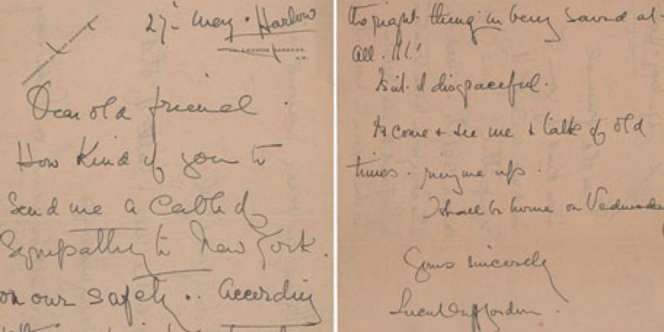 27th May. Harlow
Dear old friend.
How kind of you to
send me a cable of
sympathy to New York.
on our safety.. According
the right thing in being saved at
all. !!!
Isn't it disgraceful.
Do come & see me & talk of old
times. ring me up.
I shall be home on Wednesday
Yours sincerely
Lucy Duff Gordon.